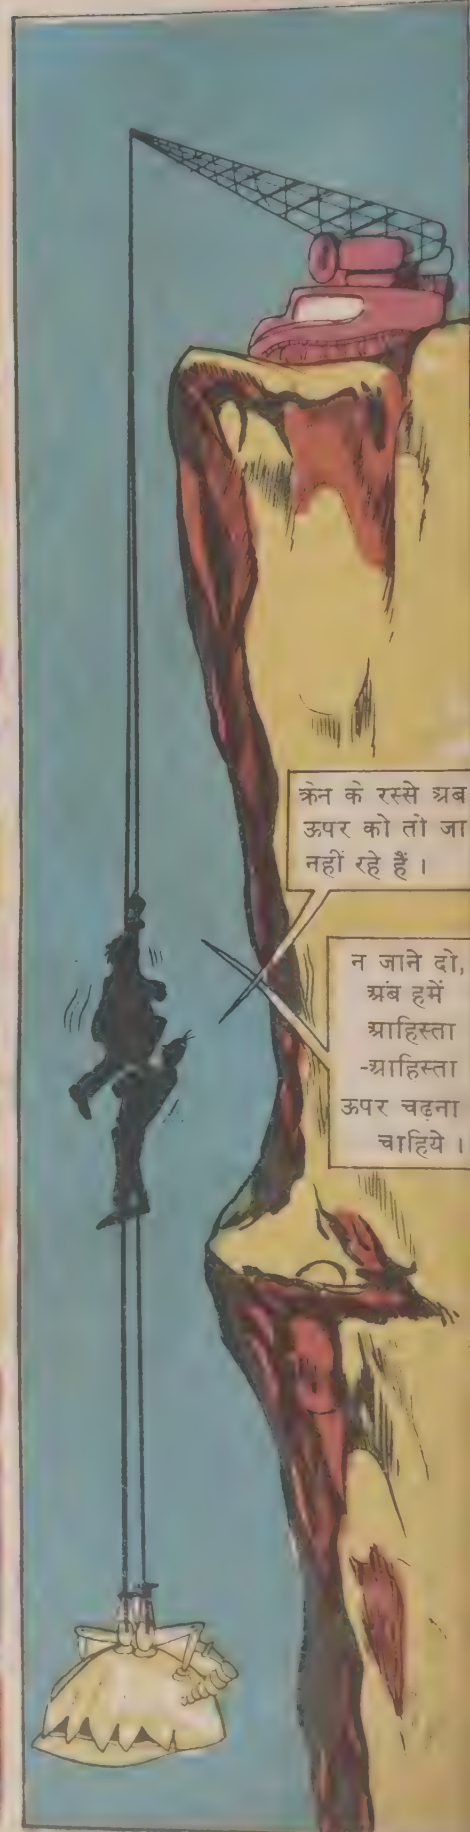 क्रेन के रस्से अब
ऊपर को तो जा
नहीं रहे हैं ।
न जाने दो,
अंब हमें
आहिस्ता
-आहिस्ता
ऊपर चढ़ना
चाहिये ।